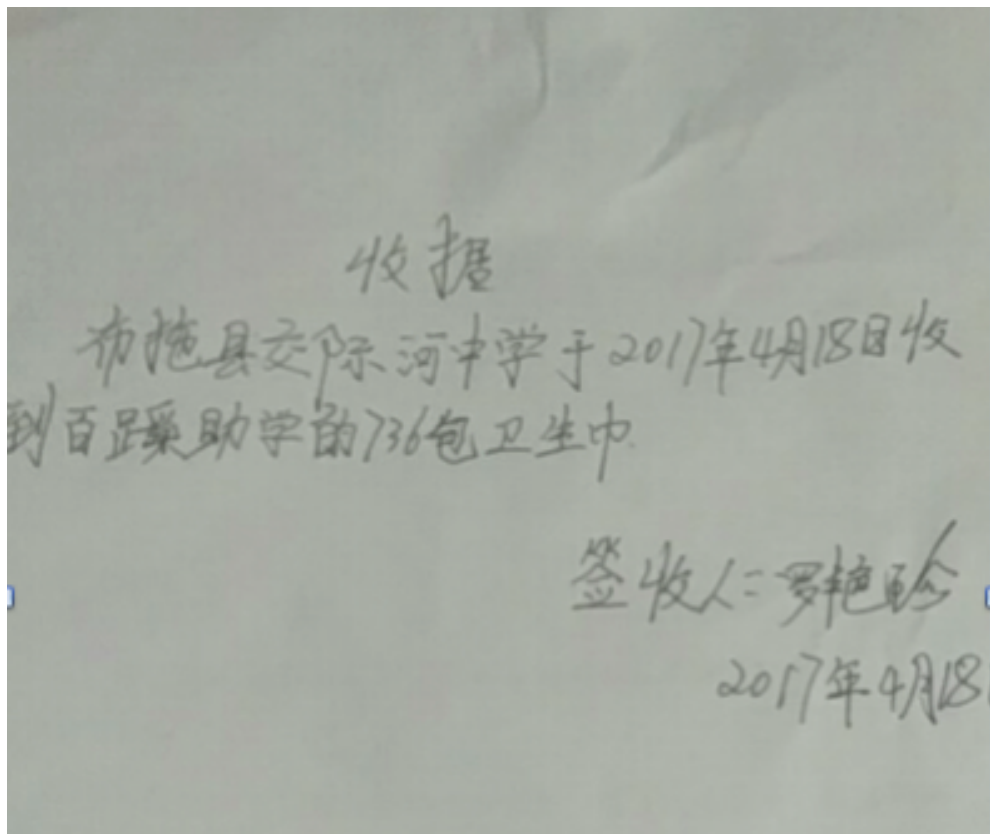 收据
布拖县交际河中学于2017年4月18日收
到百蹊助学的736包卫生巾.
签收人:罗艳
2017年4月18